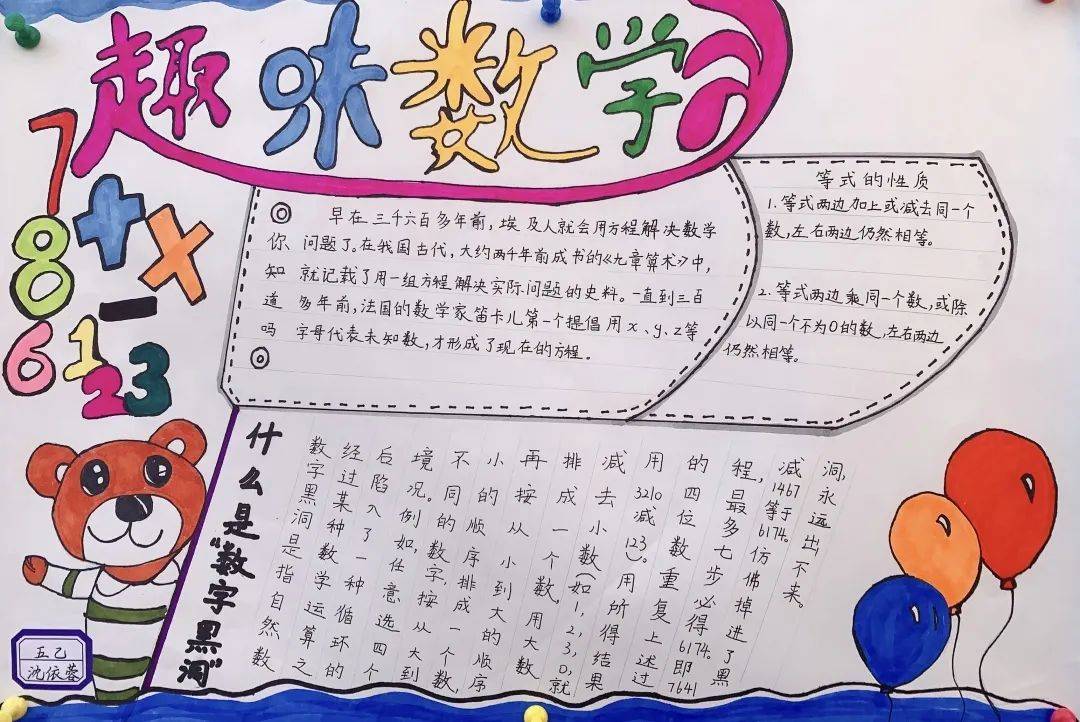 趣味数学
7
8
6
+
×
-
1
2
3
你知道吗
早在三千六百多年前,埃及人就会用方程解决数学
问题了。在我国古代,大约两千年前成书的《九章算术》中,
就记载了用一组方程解决实际问题的史料。一直到三百
多年前,法国的数学家笛卡儿第一个提倡用x、y、z等
字母代表未知数,才形成了现在的方程。
等式的性质
1.等式两边加上或减去同一个
数,左右两边仍然相等。
2.等式两边乘同一个数,或除
以同一个不为0的数,左右两边
仍然相等。
什么是"数字黑洞"
数字黑洞是指自然数
经过某种数学运算之
后陷入了一种循环的
境况。例如,任意选四个
不同的数字,按从大到
小的顺序排成一个数,
再按从小到大的顺序
排成一个数,用大数
减去小数(如1,2,3,0,就
用3210减123)。用所得结果
的四位数重复上述过
程,最多七步必得6174。即7641
减1467等于6174。仿佛掉进了黑
洞,永远出不来。
五乙
沈依蓉